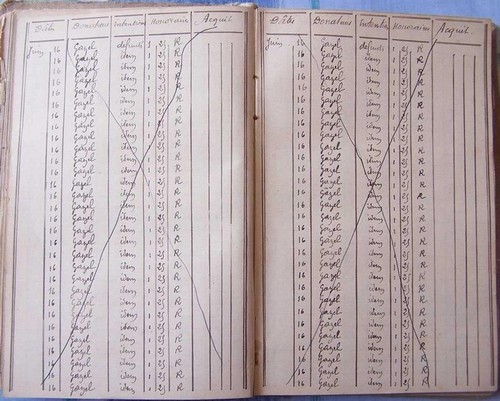 Dates Donateurs Intentions Honoraires Acquit
Juin 16 Gazel defunts 1 25 R
16 Gazel idem 1 25 R
16 Gazel idem 1 25 R
16 Gazel idem 1 25 R
16 Gazel idem 1 25 R
16 Gazel idem 1 25 R
16 Gazel idem 1 25 R
16 Gazel idem 1 25 R
16 Gazel idem 1 25 R
16 Gazel idem 1 25 R
16 Gazel idem 1 25 R
16 Gazel idem 1 25 R
16 Gazel idem 1 25 R
16 Gazel idem 1 25 R
16 Gazel idem 1 25 R
16 Gazel idem 1 25 R
16 Gazel idem 1 25 R
16 Gazel idem 1 25 R
16 Gazel idem 1 25 R
16 Gazel idem 1 25 R
16 Gazel idem 1 25 R
16 Gazel idem 1 25 R
16 Gazel idem 1 25 R
16 Gazel idem 1 25 R
16 Gazel idem 1 25 R
16 Gazel idem 1 25 R
16 Gazel idem 1 25 R
16 Gazel idem 1 25 R
16 Gazel idem 1 25 R
16 Gazel idem 1 25 R
Dates Donateurs Intentions Honoraires Acquit.
Juin 16 Gazel defunts 1 25 R
16 Gazel idem 1 25 R
16 Gazel idem 1 25 R
16 Gazel idem 1 25 R
16 Gazel idem 1 25 R
16 Gazel idem 1 25 R
16 Gazel idem 1 25 R
16 Gazel idem 1 25 R
16 Gazel idem 1 25 R
16 Gazel idem 1 25 R
16 Gazel idem 1 25 R
16 Gazel idem 1 25 R
16 Gazel idem 1 25 R
16 Gazel idem 1 25 R
16 Gazel idem 1 25 R
16 Gazel idem 1 25 R
16 Gazel idem 1 25 R
16 Gazel idem 1 25 R
16 Gazel idem 1 25 R
16 Gazel idem 1 25 R
16 Gazel idem 1 25 R
16 Gazel idem 1 25 R
16 Gazel idem 1 25 R
16 Gazel idem 1 25 R
16 Gazel idem 1 25 R
16 Gazel idem 1 25 R
16 Gazel idem 1 25 R
16 Gazel idem 1 25 R
16 Gazel idem 1 25 R
16 Gazel idem 1 25 R